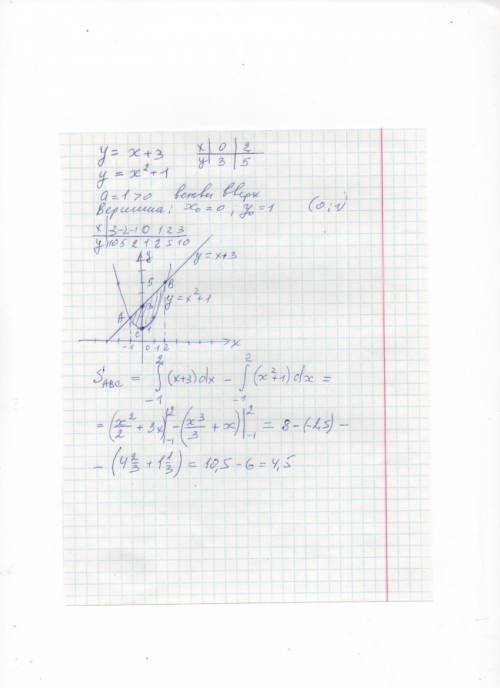 y = x+3   x | 0 | 2
y | 3 | 5
y = x²+1
a=1>0 ветви вверх
Вершина: x₀=0, y₀=1 (0;1)
x | -3 -2 -1 0 1 2 3
y | 10 5 2 1 2 5 10
y
y=x+3
5
B
y=x²+1
3
A
C 1
-1 0 1 2 x
S_ABC = ∫₋₁² (x+3)dx − ∫₋₁² (x²+1)dx =
= (x²/2 + 3x)|₋₁² − (x³/3 + x)|₋₁² = 8 − (−2,5) −
− (4 2/3 + 1 1/3) = 10,5 − 6 = 4,5